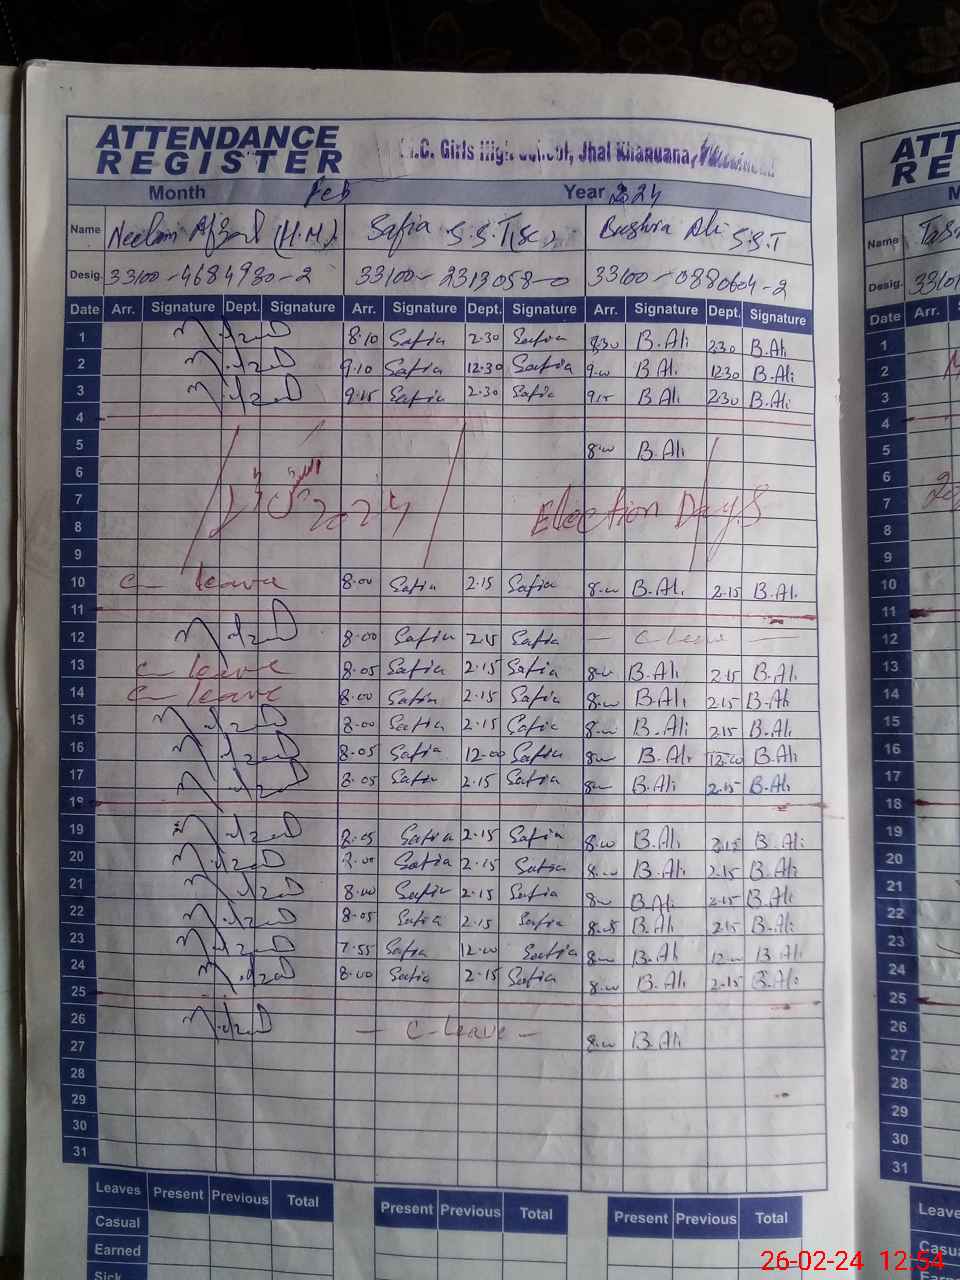 ATTENDANCE
REGISTER
M.C. Girls High School, Jhal Khanuana,
Month Feb Year 2024
Name Neelam Afzal (H.M) Safia S.S.T(Sc) Bushra Ali S.S.T
Desig. 33100-4684930-2 33100-2313058-0 33100-0880604-2
Date Arr. Signature Dept. Signature Arr. Signature Dept. Signature Arr. Signature Dept. Signature
1 8.10 Safia 2.30 Safia 8.30 B.Ali 2.30 B.Ali
2 9.10 Safia 12.30 Safia 9.00 B Ali 12.30 B.Ali
3 9.15 Safia 2.30 Safia 9.15 B Ali 2.30 B.Ali
4
5 8.00 B.Ali
6
7 2024 Election Days
8
9
10 C- leave 8.00 Safia 2.15 Safia 8.00 B.Ali 2.15 B.Ali
11
12 8.00 Safia 2.15 Safia — C-leave —
13 C- leave 8.05 Safia 2.15 Safia 8.00 B.Ali 2.15 B.Ali
14 C- leave 8.00 Safia 2.15 Safia 8.00 B.Ali 2.15 B.Ali
15 8.00 Safia 2.15 Safia 8.00 B.Ali 2.15 B.Ali
16 8.05 Safia 12.00 Safia 8.00 B.Ali 12.00 B.Ali
17 8.05 Safia 2.15 Safia 8.00 B.Ali 2.15 B.Ali
18
19 8.05 Safia 2.15 Safia 8.00 B.Ali 2.15 B.Ali
20 8.00 Safia 2.15 Safia 8.00 B.Ali 2.15 B.Ali
21 8.00 Safia 2.15 Safia 8.00 B.Ali 2.15 B.Ali
22 8.05 Safia 2.15 Safia 8.05 B.Ali 2.15 B.Ali
23 7.55 Safia 12.00 Safia 8.00 B.Ali 12.00 B.Ali
24 8.00 Safia 2.15 Safia 8.00 B.Ali 2.15 B.Ali
25
26 — C-leave — 8.00 B.Ali
27
28
29
30
31
Leaves Present Previous Total Present Previous Total Present Previous Total
Casual
Earned
Sick
ATT
RE
M
Name
Desig. 3310
Date Arr.
1
2
3
4
5
6
7
8
9
10
11
12
13
14
15
16
17
18
19
20
21
22
23
24
25
26
27
28
29
30
31
Leave
Casua
26-02-24 12:54